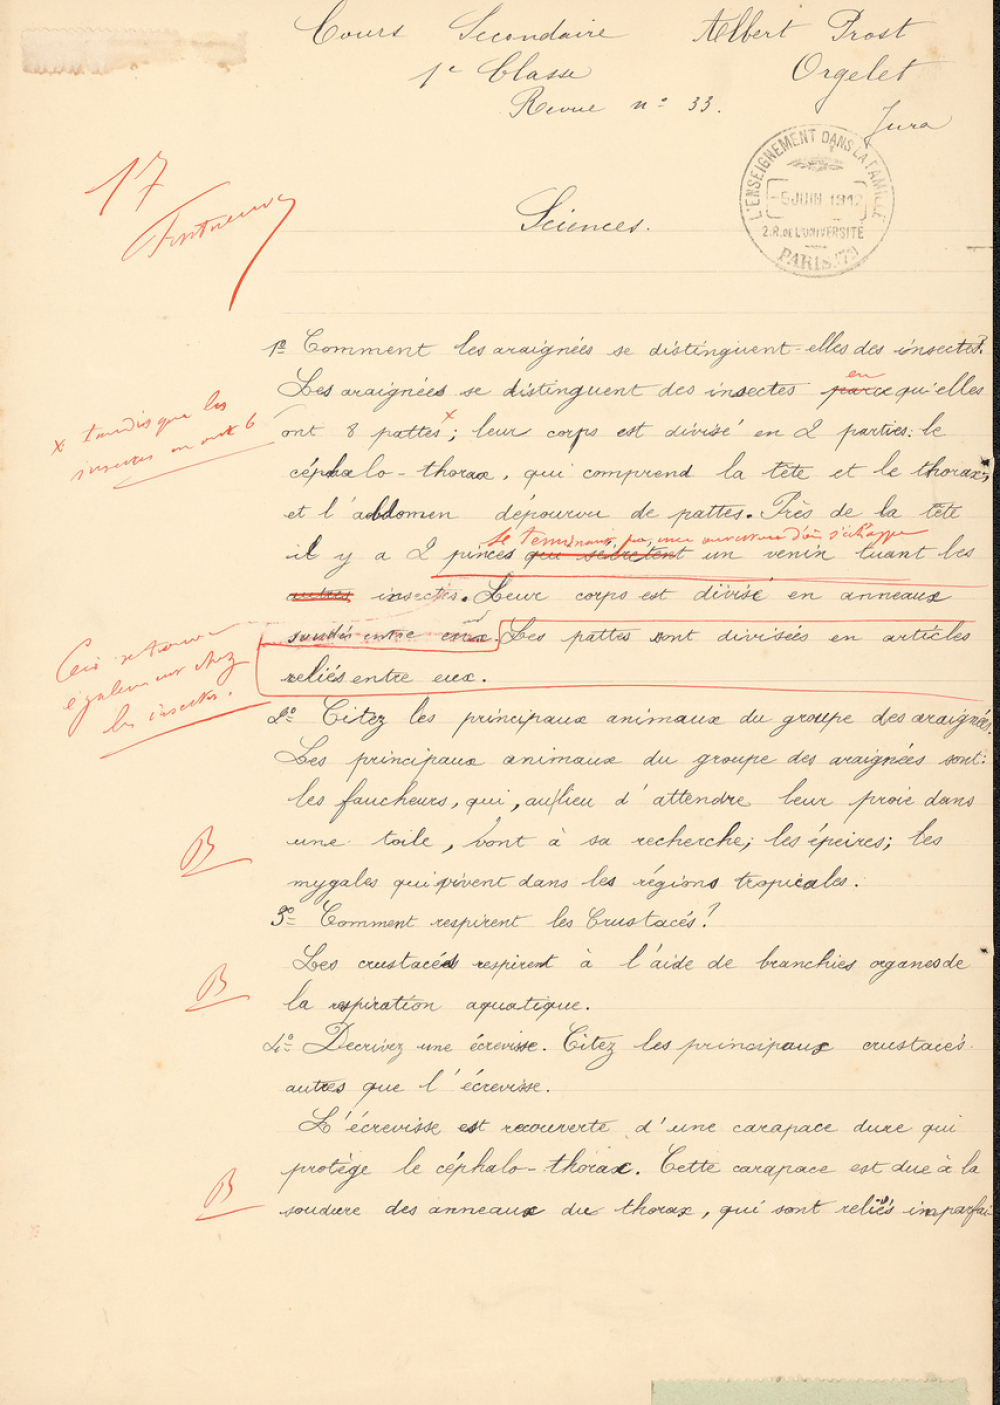 Cours Secondaire Albert Prost
1e Classe Orgelet
Revue n° 33. Jura
L'ENSEIGNEMENT DANS LA FAMILLE
-5 JUIN 1912
2.R. DE L'UNIVERSITÉ
PARIS (7e)
17
Sciences.
1° Comment les araignées se distinguent-elles des insectes?
en
Les araignées se distinguent des insectes parce qu'elles
x tandis que les
insectes en ont 6
ont 8 pattes x; leur corps est divisé en 2 parties: le
céphalo-thorax, qui comprend la tête et le thorax,
et l'abdomen dépourvu de pattes. Près de la tête
se terminant par une ouverture d'où s'échappe
il y a 2 pinces qui sécrètent un venin tuant les
autres insectes. Leur corps est divisé en anneaux
Ceci se trouve
également chez
les insectes.
soudés entre eux. Les pattes sont divisées en articles
reliés entre eux.
2° Citez les principaux animaux du groupe des araignées.
Les principaux animaux du groupe des araignées sont:
les faucheurs, qui, au lieu d'attendre leur proie dans
B
une toile, vont à sa recherche; les épeires; les
mygales qui vivent dans les régions tropicales.
3° Comment respirent les Crustacés?
Les crustacés respirent à l'aide de branchies organes de
B
la respiration aquatique.
4° Decrivez une écrevisse. Citez les principaux crustacés
autres que l'écrevisse.
L'écrevisse est recouverte d'une carapace dure qui
protège le céphalo-thorax. Cette carapace est due à la
B
soudure des anneaux du thorax, qui sont reliés imparfai-